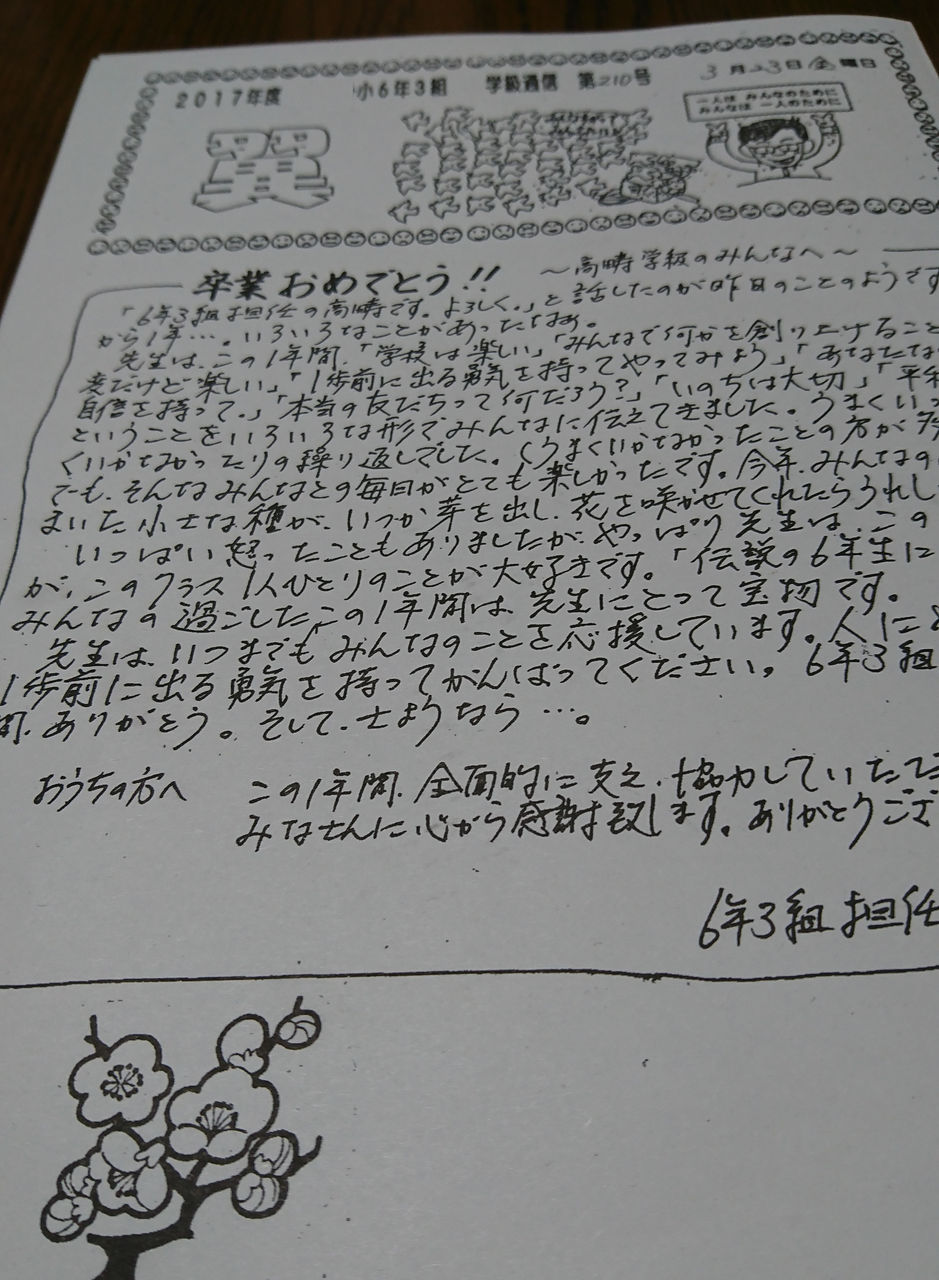 2017年度 小6年3組 学級通信 第210号 3月23日金曜日
一人は みんなのために
みんなは 一人のために
卒業おめでとう!! ～高崎学級のみんなへ～
「6年3組担任の高崎です。よろしく。」と話したのが昨日のことのようです
から1年…。いろいろなことがあったなあ。
先生は、この1年間、「学校は楽しい」「みんなで何かを創り上げること
変だけど楽しい」「1歩前に出る勇気を持ってやってみよう」「あなたな
自信を持って。」「本当の友だちって何だろう?」「いのちは大切」「平和
ということをいろいろな形でみんなに伝えてきました。うまくいっ
くいかなかったりの繰り返しでした。(うまくいかなかったことの方が
でも、そんなみんなとの毎日がとても楽しかったです。今年、みんなの
まいた小さな種が、いつか芽を出し、花を咲かせてくれたらうれし
いっぱい怒ったこともありましたが、やっぱり先生は、この
が、このクラス1人ひとりのことが大好きです。「伝説の6年生に
みんなの過ごしたこの1年間は、先生にとって宝物です。
先生は、いつまでもみんなのことを応援しています。人に
1歩前に出る勇気を持ってがんばってください。6年3組
間、ありがとう。そして、さようなら…。
おうちの方へ この1年間、全面的に支え、協力していただ
みなさんに心から感謝致します。ありがとうござ
6年3組担任